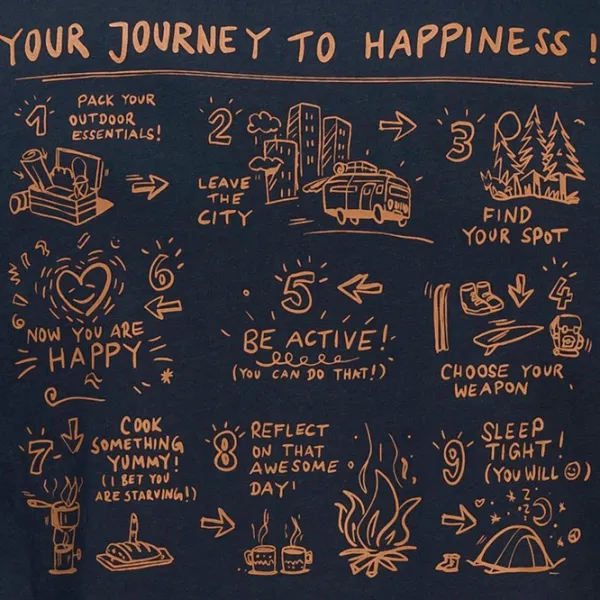 YOUR JOURNEY TO HAPPINESS!
1
PACK YOUR
OUTDOOR
ESSENTIALS!
2
LEAVE
THE
CITY
3
FIND
YOUR SPOT
4
CHOOSE YOUR
WEAPON
5
BE ACTIVE!
(YOU CAN DO THAT!)
6
NOW YOU ARE
HAPPY
7
COOK
SOMETHING
YUMMY!
(I BET YOU
ARE STARVING!)
8
REFLECT
ON THAT
AWESOME
DAY!
9
SLEEP
TIGHT!
(YOU WILL ☺)
z
z
z